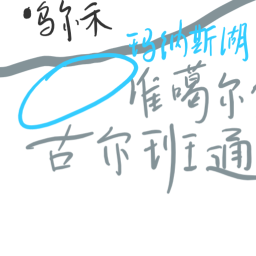 乌尔禾
玛纳斯湖
准噶尔
古尔班通